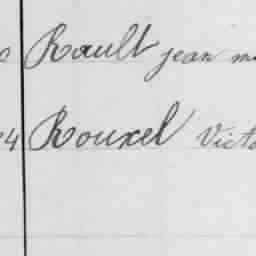 Rault jean m
4 Rouxel Victo